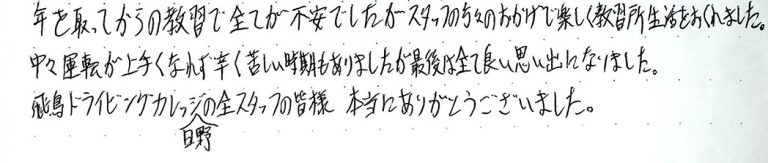 年を取ってからの教習で全てが不安でしたがスタッフの方々のおかげで楽しく教習所生活をおくれました。
中々運転が上手くなれず辛く苦しい時期もありましたが最後は全て良い思い出になりました。
飛鳥ドライビングカレッジの全スタッフの皆様 本当にありがとうございました。
日野